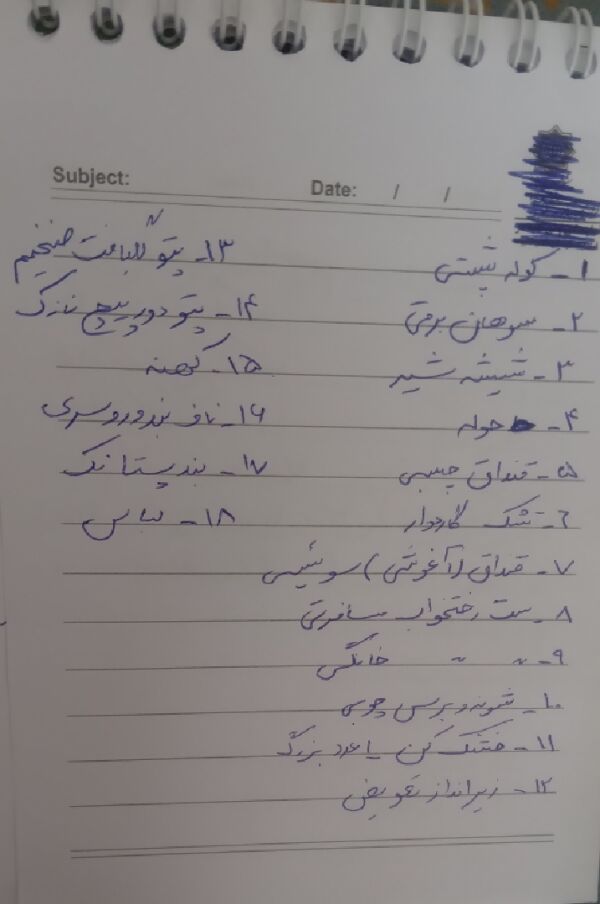 Subject:
Date: / /
۱- کوله پشتی
۲- سوهان برقی
۳- شیشه شیر
۴- حوله
۵- قنداق چسبی
۶- تشک گاردوار
۷- قنداق (آغوشی) سوئیسی
۸- ست رختخواب مسافرتی
۹- " " خانگی
۱۰- شونه و برس چوبی
۱۱- خشک کن یا عدد بزرگ
۱۲- زیرانداز تعویض
۱۳- پتو گلبافت ضخیم
۱۴- پتو دورپیچ نازک
۱۵- کهنه
۱۶- ناف بند و روسری
۱۷- بند پستانک
۱۸- لباس